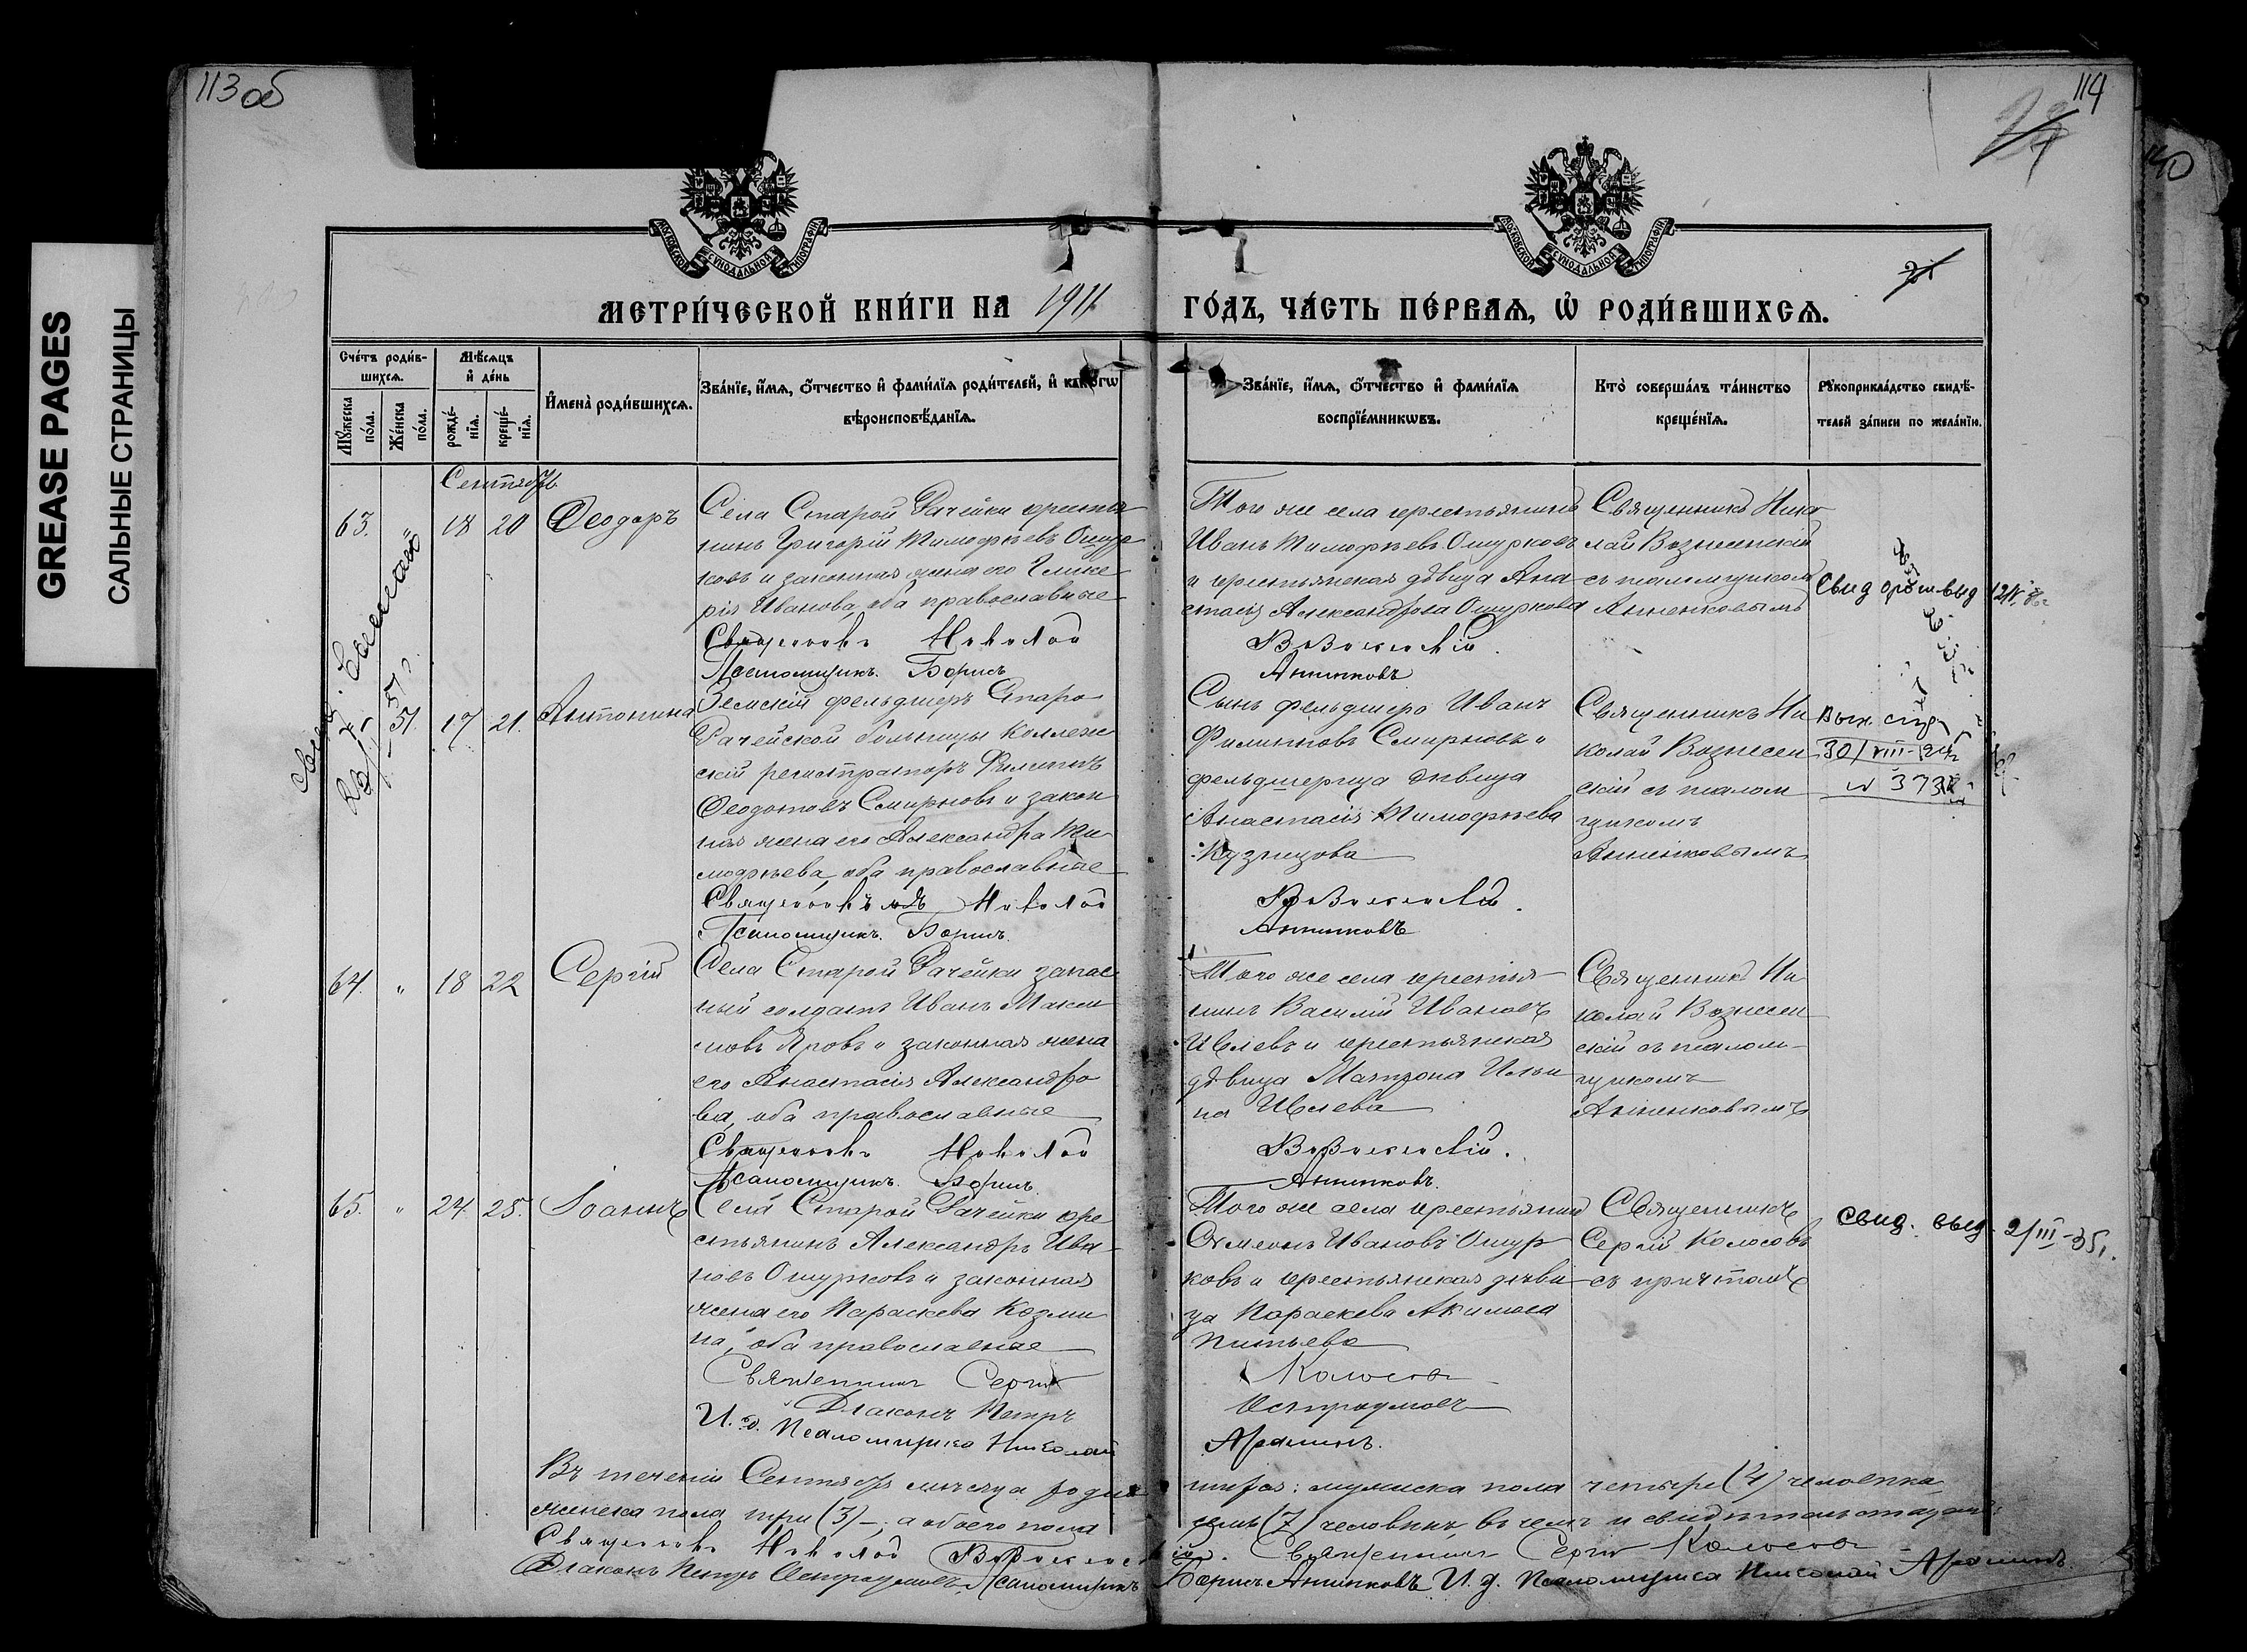 113 об
114
140
GREASE PAGES
САЛЬНЫЕ СТРАНИЦЫ
МОСКОВСКОЙ СѴНОДАЛЬНОЙ ТИПОГРАФІИ
МОСКОВСКОЙ СѴНОДАЛЬНОЙ ТИПОГРАФІИ
МЕТРИ́ЧЕСКОЙ КНИ́ГИ НА 1911
ГО́ДЪ, ЧА́СТЬ ПЕ́РВАѦ, Ѡ҆ РОДИ́ВШИХСѦ.
Сче́тъ роди́в-
шихсѧ.
Мꙋ́жеска
по́ла.
Же́нска
по́ла.
Мѣ́сѧцъ
и҆ де́нь
рожде́-
нїѧ.
креще́-
нїѧ.
И҆мена̀ роди́вшихсѧ.
Зва́нїе, и҆́мѧ, ѻ҆́тчество и҆ фами́лїѧ роди́телей, и҆ како́гѡ
вѣроисповѣ́данїѧ.
Зва́нїе, и҆́мѧ, ѻ҆́тчество и҆ фами́лїѧ
воспрїе́мникѡвъ.
Кто̀ соверша́лъ та́инство
креще́нїѧ.
Рꙋкоприкла́дство свидѣ́-
телей за́писи по жела́нїю.
Сентябрь
63. " 18 20 Ѳеодоръ
Села Старой Рачейки крестья
нинъ Григорій Тимофѣевъ Ошур
ковъ и законная жена его Глике
рія Иванова, оба православные
Священникъ Николай
Псаломщикъ Борисъ
Того же села крестьянинъ
Иванъ Тимофѣевъ Ошурковъ
и крестьянская дѣвица Ана
стасія Александрова Ошуркова
Вознесенскій.
Анненковъ
Священникъ Нико
лай Вознесенскій
съ псаломщикомъ
Анненковымъ
51. 17 21. Антонина
Земскій фельдшеръ Старо
Рачейской больницы Коллеж
скій регистраторъ Филиппъ
Ѳеодотовъ Смирновъ и закон
ная жена его Александра Ти
мофѣева, оба православные
Николай
Псаломщикъ. Борисъ.
Сынъ фельдшера Иванъ
Филипповъ Смирновъ и
фельдшерица дѣвица
Анастасія Тимофѣева
Кузнецова
Вознесенскій.
Анненковъ
Священникъ Ни
колай Вознесен
скій съ псалом
щикомъ
Анненковымъ
64. " 18 22 Сергій
Села Старой Рачейки запас
ный солдатъ Иванъ Макси
мовъ Яровъ и законная жена
его Анастасія Александро
ва, оба православные
Священникъ Николай
Псаломщикъ. Борисъ.
Того же села крестья
нинъ Василій Ивановъ
Ивлевъ и крестьянская
дѣвица Матрона Ильи
на Ивлева
Вознесенскій.
Анненковъ.
Священникъ Ни
колай Вознесен
скій съ псалом-
щикомъ
Анненковымъ
65. " 24. 25. Іоаннъ
Села Старой Рачейки кре
стьянинъ Александръ Ива
новъ Ошурковъ и законная
жена его Параскева Козми
на, оба православные
Священникъ Сергій
Діаконъ Петръ
И. д. Псаломщика Николай
Того же села крестьянинъ
Симеонъ Ивановъ Ошур
ковъ и крестьянская дѣви
ца Параскева Акимова
Колосовъ
Остроумовъ
Священникъ
Сергій Колосовъ
съ причтомъ
Свид. выд. 2/III-35г.
Въ теченіи Сентября мѣсяца роди
лось: мужеска пола четыре (4) человѣка,
женска пола три (3) –, а обоего пола
семь (7) человѣкъ, въ чемъ и свидѣтельствуютъ:
Священникъ Николай Вознесенскій. Священникъ Сергій Колосовъ
Діаконъ Петръ Остроумовъ. Псаломщикъ Борисъ Анненковъ И. д. Псаломщика Николай